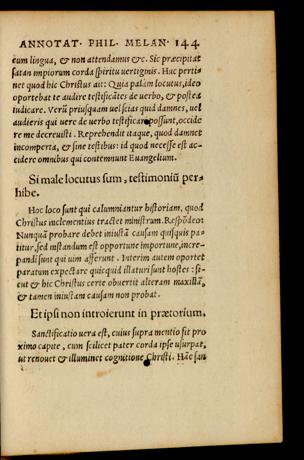 ANNOTAT. PHIL. MELAN. 144
cum lingua, & non attendamus &c. Sic præcipitat
satan impiorum corda spiritu vertiginis. Huc perti-
net quod hic Christus ait: Quia palàm locutus, ideo
oportebat te audire testificãtes de uerbo, & postea
iudicare. Verũ priusquam uel scias quid damnes, uel
audieris qui uere de uerbo testificari possunt, occide
re me decreuisti. Reprehendit itaque, quod damnet
incomperta, & sine testibus: id quod necesse est ac-
cidere omnibus qui contemnunt Euangelium.
Si male locutus sum, testimoniũ per-
hibe.
Hoc loco sunt qui calumniantur historiam, quod
Christus inclementius tractet ministrum. Respõdeo:
Nunquã probare debet iniustã causam quisquis pa-
titur, sed instandum est opportune importune, incre-
pandi sunt qui uim afferunt. Interim autem oportet
paratum expectare quicquid illaturi sunt hostes: si-
cut & hic Christus certe obuertit alteram maxillã,
& tamen iniustam causam non probat.
Et ipsi non introierunt in prætorium.
Sanctificatio uera est, cuius supra mentio fit pro
ximo capite, cum scilicet pater corda ipse usurpat,
ut renouet & illuminet cognitione Christi. Hãc san